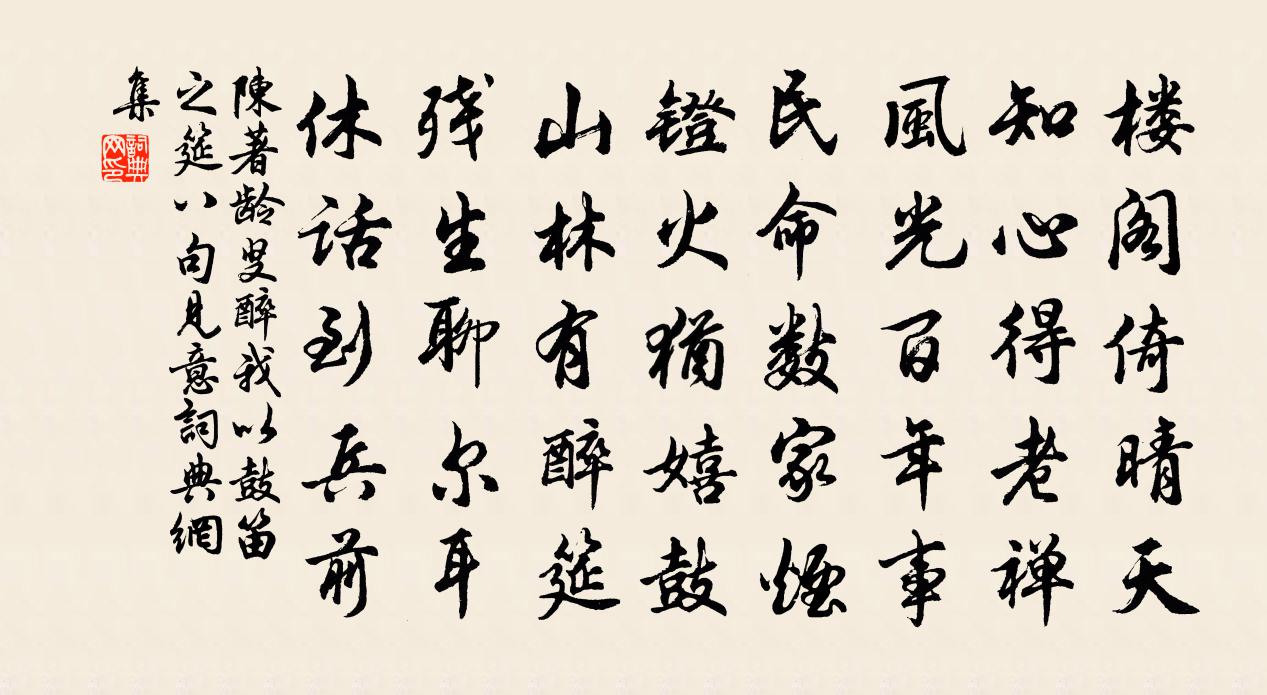 楼阁倚晴天
知心得老禅
風光百年事
民命数家煙
镫火猶嬉鼓
山林有醉筵
残生聊尔耳
休话到兵前
陳著龄叟醉我以鼓笛
之筵八句見意詞典網
集
詞典網印